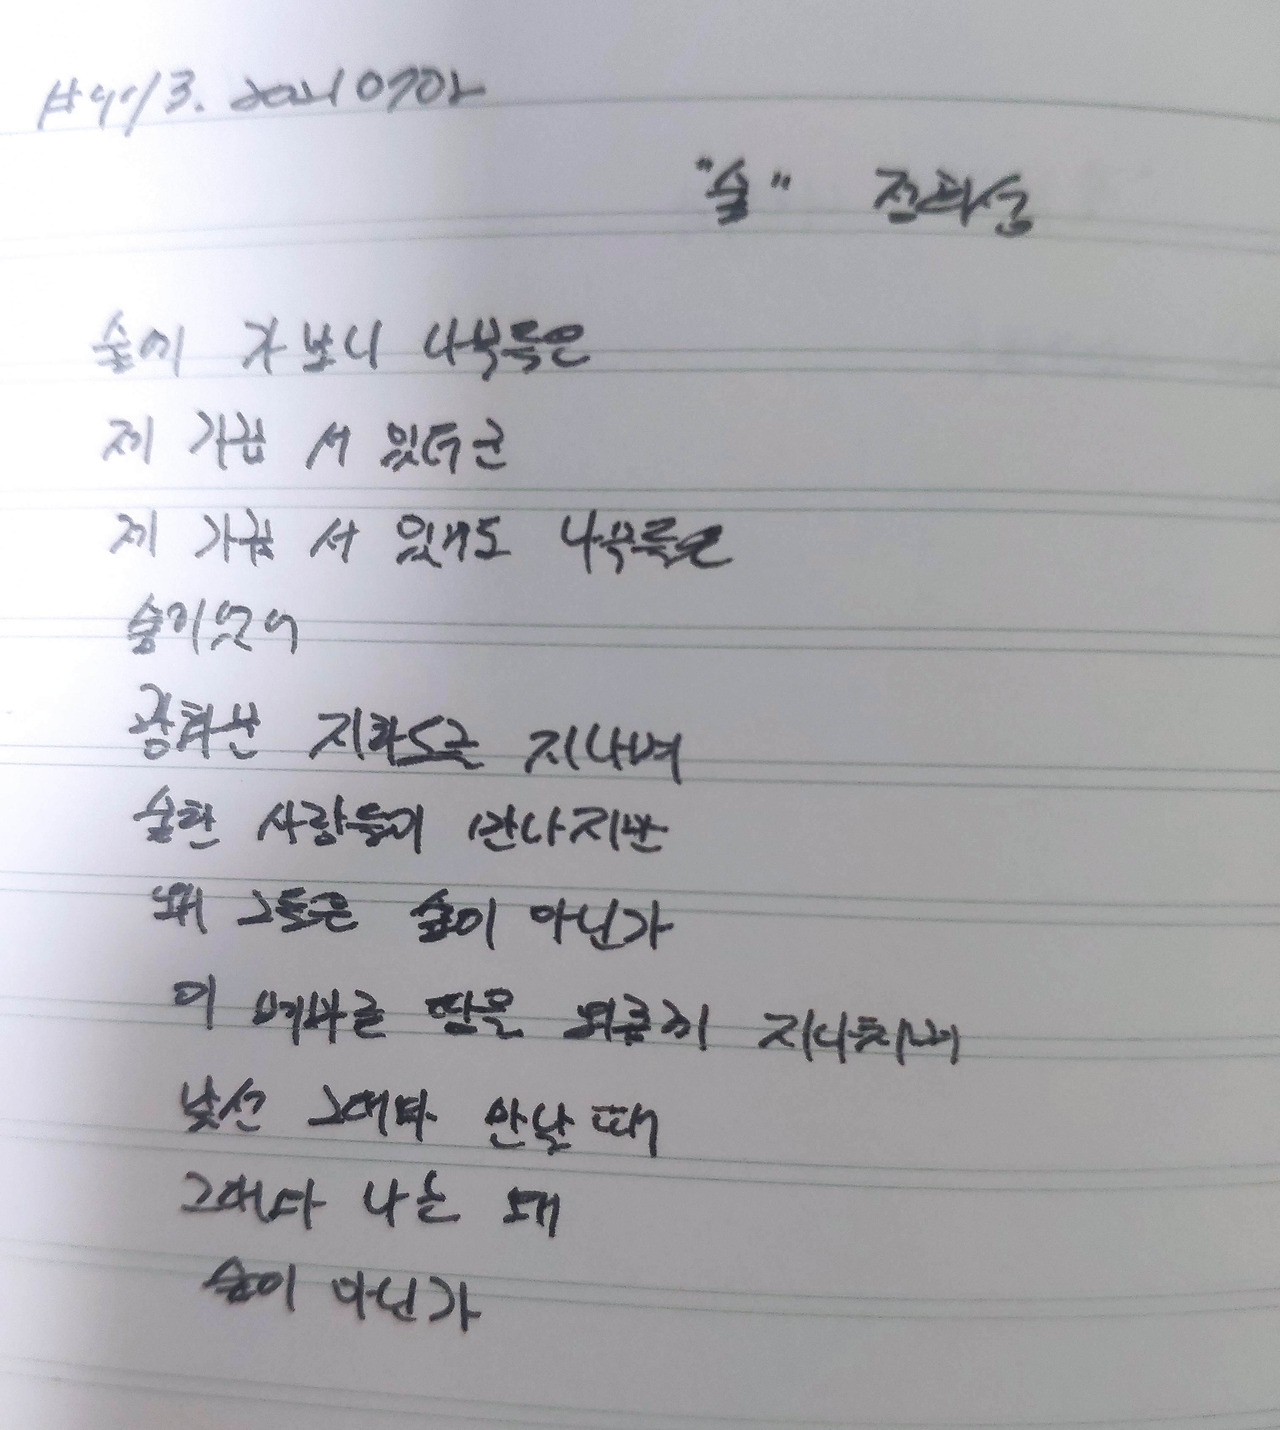 "숲" 정희성
숲에 가 보니 나무들은
제 가끔 서 있더군
제 가끔 서 있어도 나무들은
숲이었어
광화문 지하도를 지나며
숱한 사람들이 만나지만
왜 그들은 숲이 아닌가
이 메마른 땅을 외롭게 지나치며
낯선 그대와 만날 때
그대와 나는 왜
숲이 아닌가